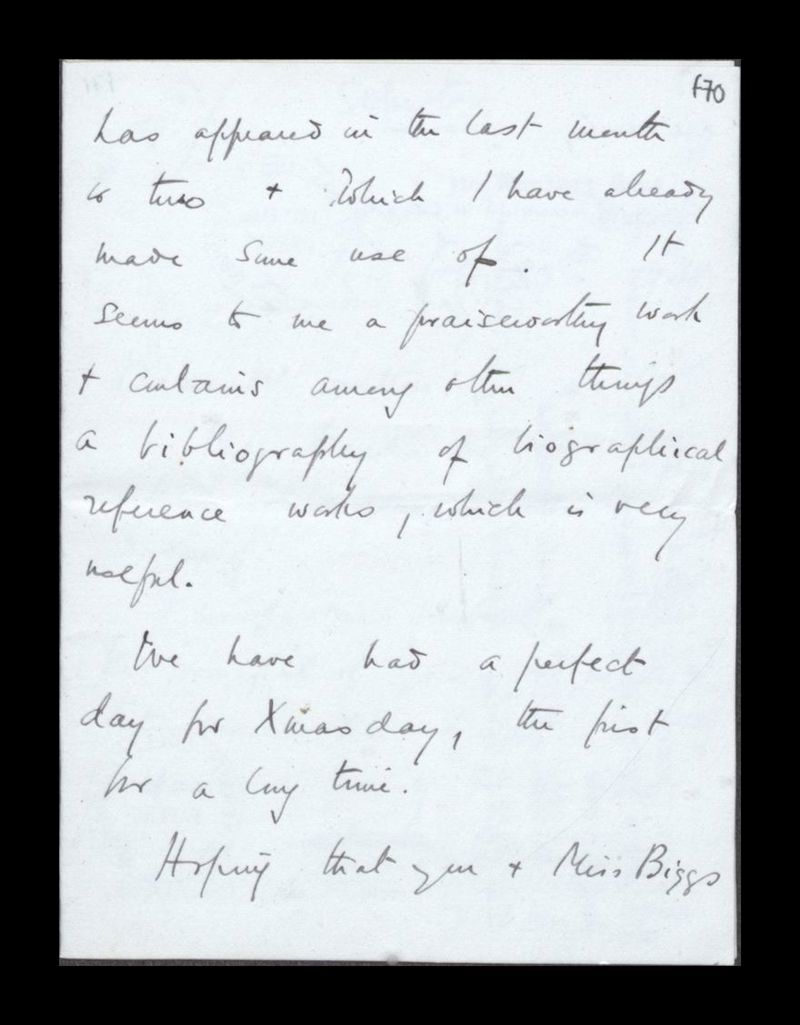 f70
has appeared in the last month
or two + which I have already
made some use of. It
seems to me a praiseworthy work
+ contains among other things
a bibliography of biographical
reference works, which is very
useful.
We have had a perfect
day for Xmas day, the first
for a long time.
Hoping that you + Miss Biggs